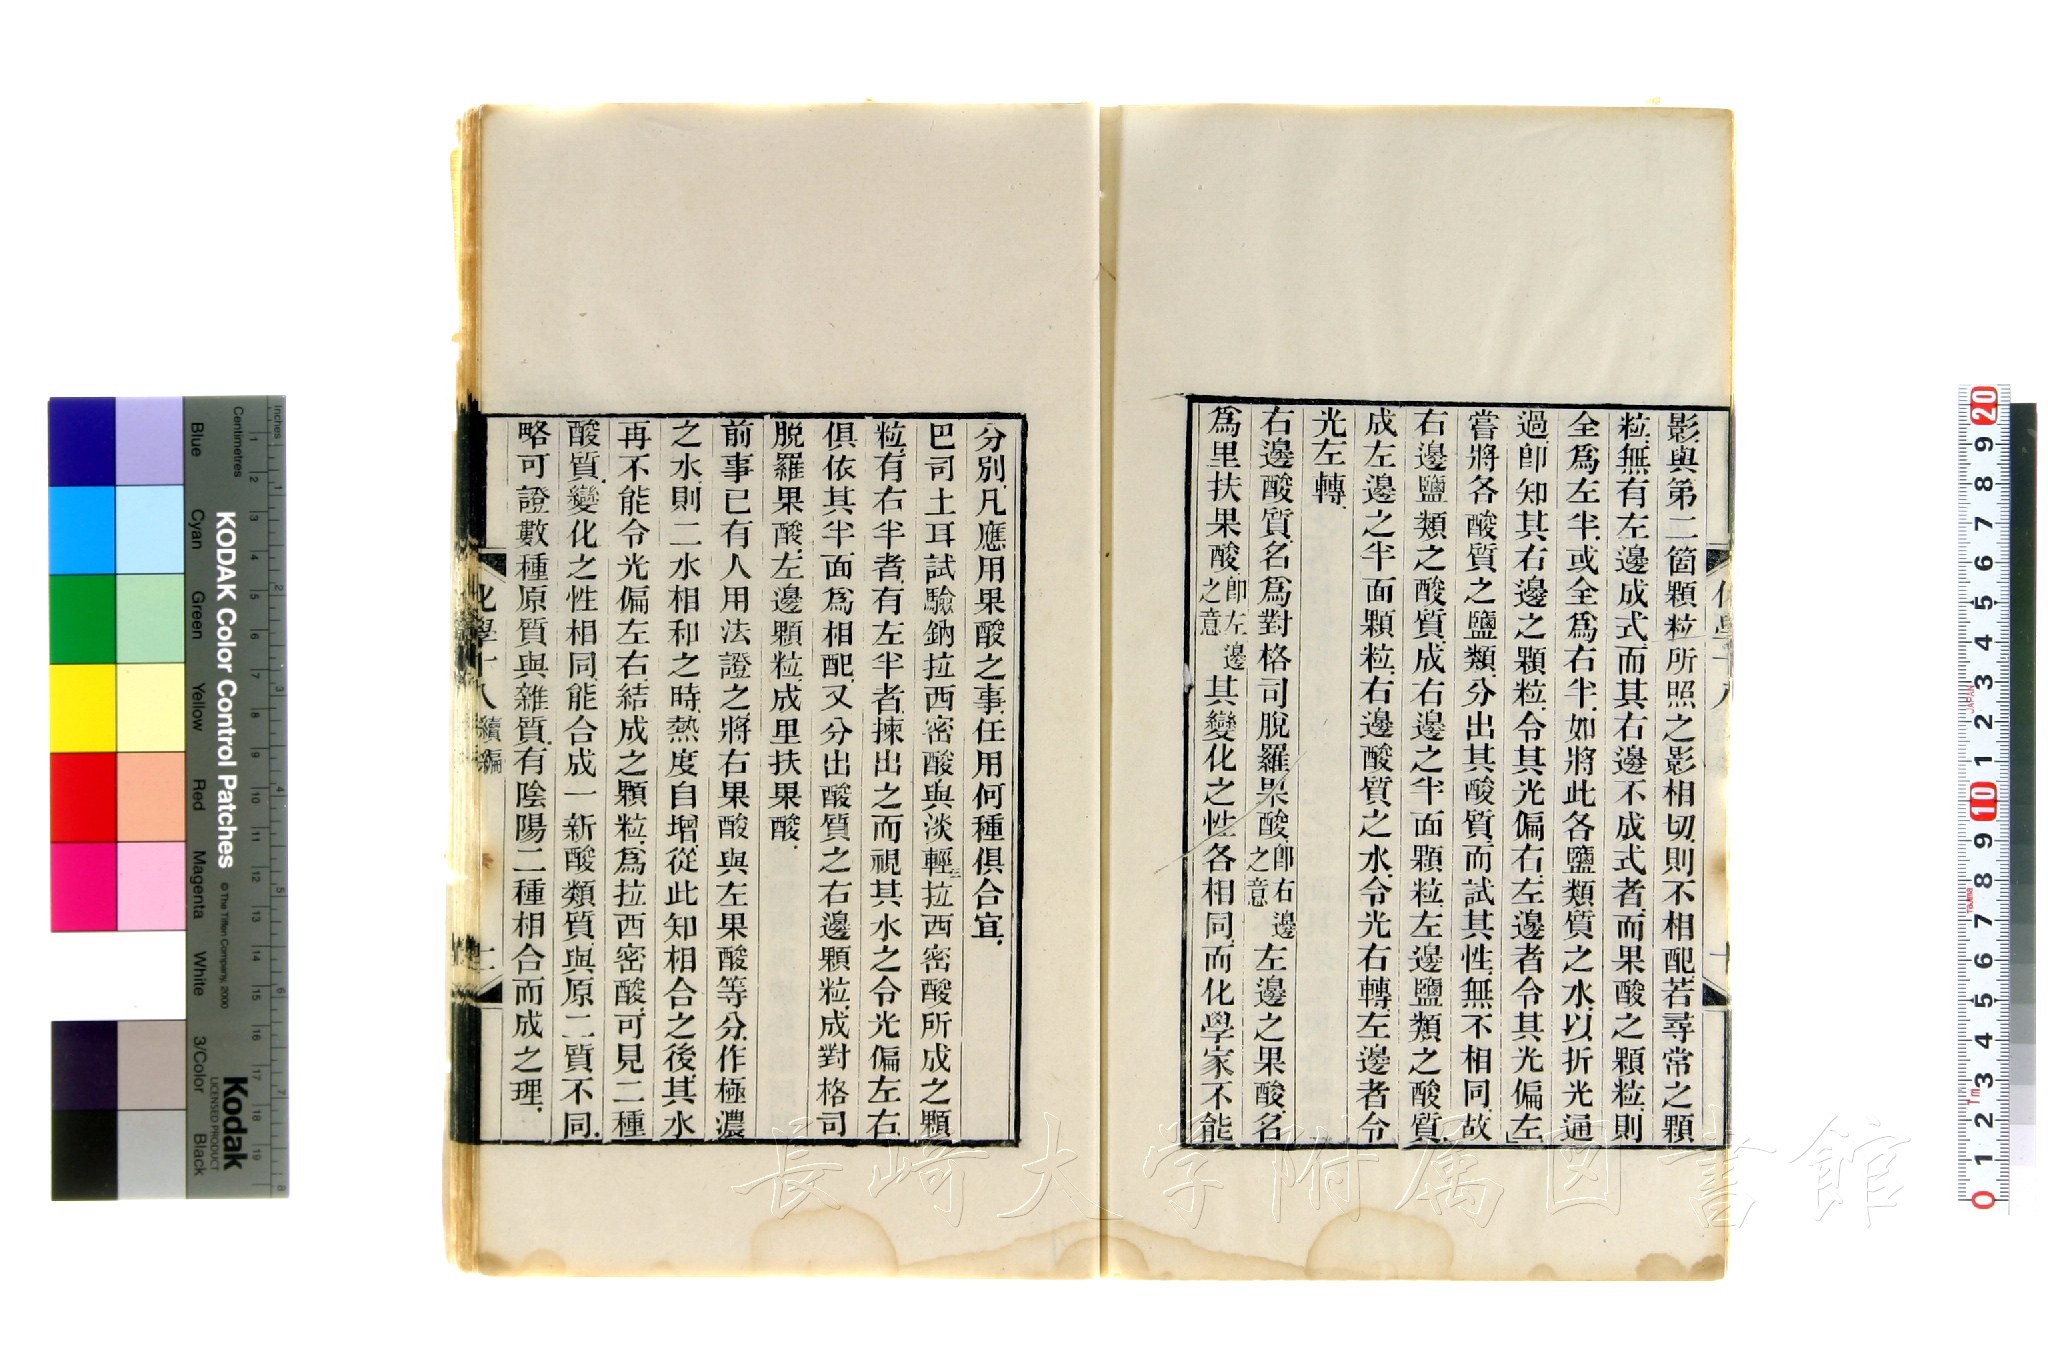 影與第二箇顆粒所照之影相切則不相配若尋常之顆
粒無有左邊成式而其右邊不成式者而果酸之顆粒則
全爲左半或全爲右半如將此各鹽類質之水以折光通
過卽知其右邊之顆粒令其光偏右左邊者令其光偏左
嘗將各酸質之鹽類分出其酸質而試其性無不相同故
右邊鹽類之酸質成右邊之半面顆粒左邊鹽類之酸質
成左邊之半面顆粒右邊酸質之水令光右轉左邊者令
光左轉
右邊酸質名爲對格司脫羅果酸卽右邊之意左邊之果酸名
爲里扶果酸卽左邊之意其變化之性各相同而化學家不能
分別凡應用果酸之事任用何種俱合宜
巴司土耳試驗鈉拉西密酸與淡輕三拉西密酸所成之顆
粒有右半者有左半者揀出之而視其水之令光偏左右
俱依其半面爲相配又分出酸質之右邊顆粒成對格司
脫羅果酸左邊顆粒成里扶果酸
前事已有人用法證之將右果酸與左果酸等分作極濃
之水則二水相和之時熱度自增從此知相合之後其水
再不能令光偏左右結成之顆粒爲拉西密酸可見二種
酸質變化之性相同能合成一新酸類質與原二質不同
略可證數種原質與雜質有陰陽二種相合而成之理
化學十八 續編
KODAK Color Control Patches
© The Tiffen Company, 2000
Kodak
LICENSED PRODUCT
Inches
Centimetres
Blue
Cyan
Green
Yellow
Red
Magenta
White
3/Color
Black
長崎大学附属図書館